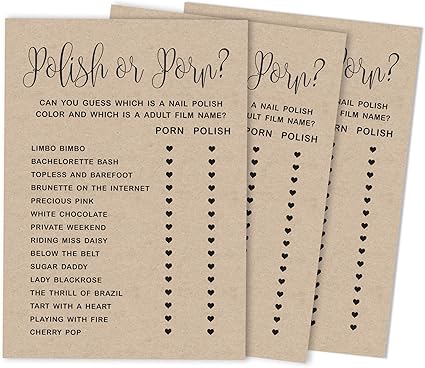 Polish or Porn?
CAN YOU GUESS WHICH IS A NAIL POLISH
COLOR AND WHICH IS A ADULT FILM NAME?
PORN POLISH
LIMBO BIMBO
BACHELORETTE BASH
TOPLESS AND BAREFOOT
BRUNETTE ON THE INTERNET
PRECIOUS PINK
WHITE CHOCOLATE
PRIVATE WEEKEND
RIDING MISS DAISY
BELOW THE BELT
SUGAR DADDY
LADY BLACKROSE
THE THRILL OF BRAZIL
TART WITH A HEART
PLAYING WITH FIRE
CHERRY POP
Porn?
A NAIL POLISH
ADULT FILM NAME?
PORN POLISH
Porn?
A NAIL POLISH
FILM NAME?
POLISH